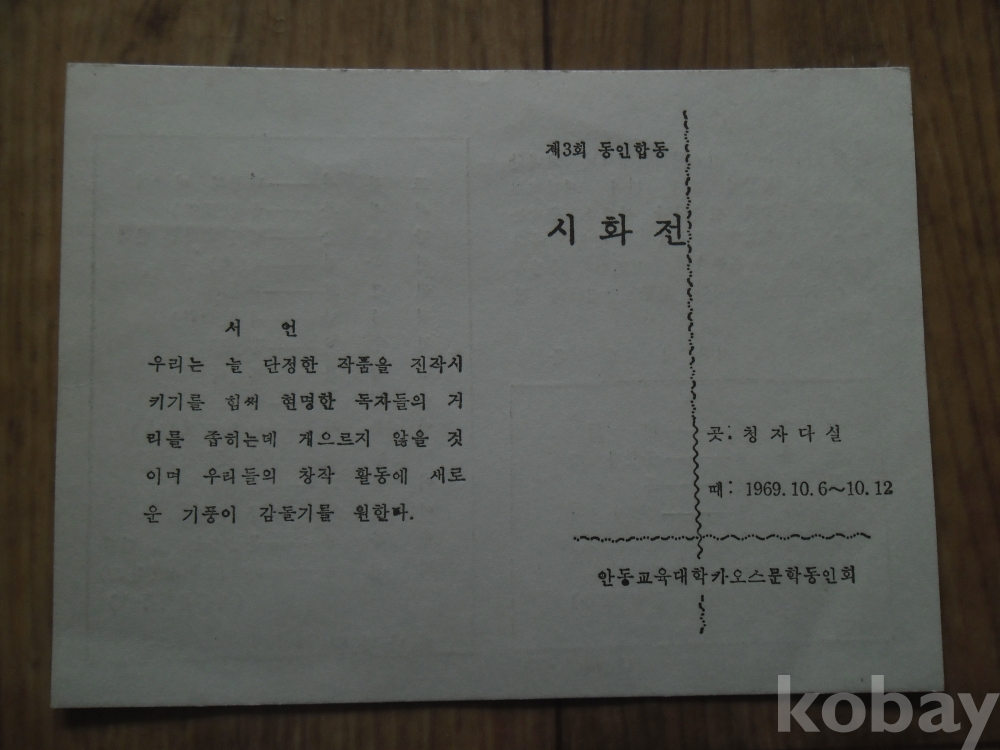 서 언
우리는 늘 단정한 작품을 진작시
키기를 힘써 현명한 독자들의 거
리를 좁히는데 게으르지 않을 것
이며 우리들의 창작 활동에 새로
운 기풍이 감돌기를 원한다.
제3회 동인합동
시화전
곳: 청자다실
때: 1969.10.6~10.12
안동교육대학카오스문학동인회
kobay